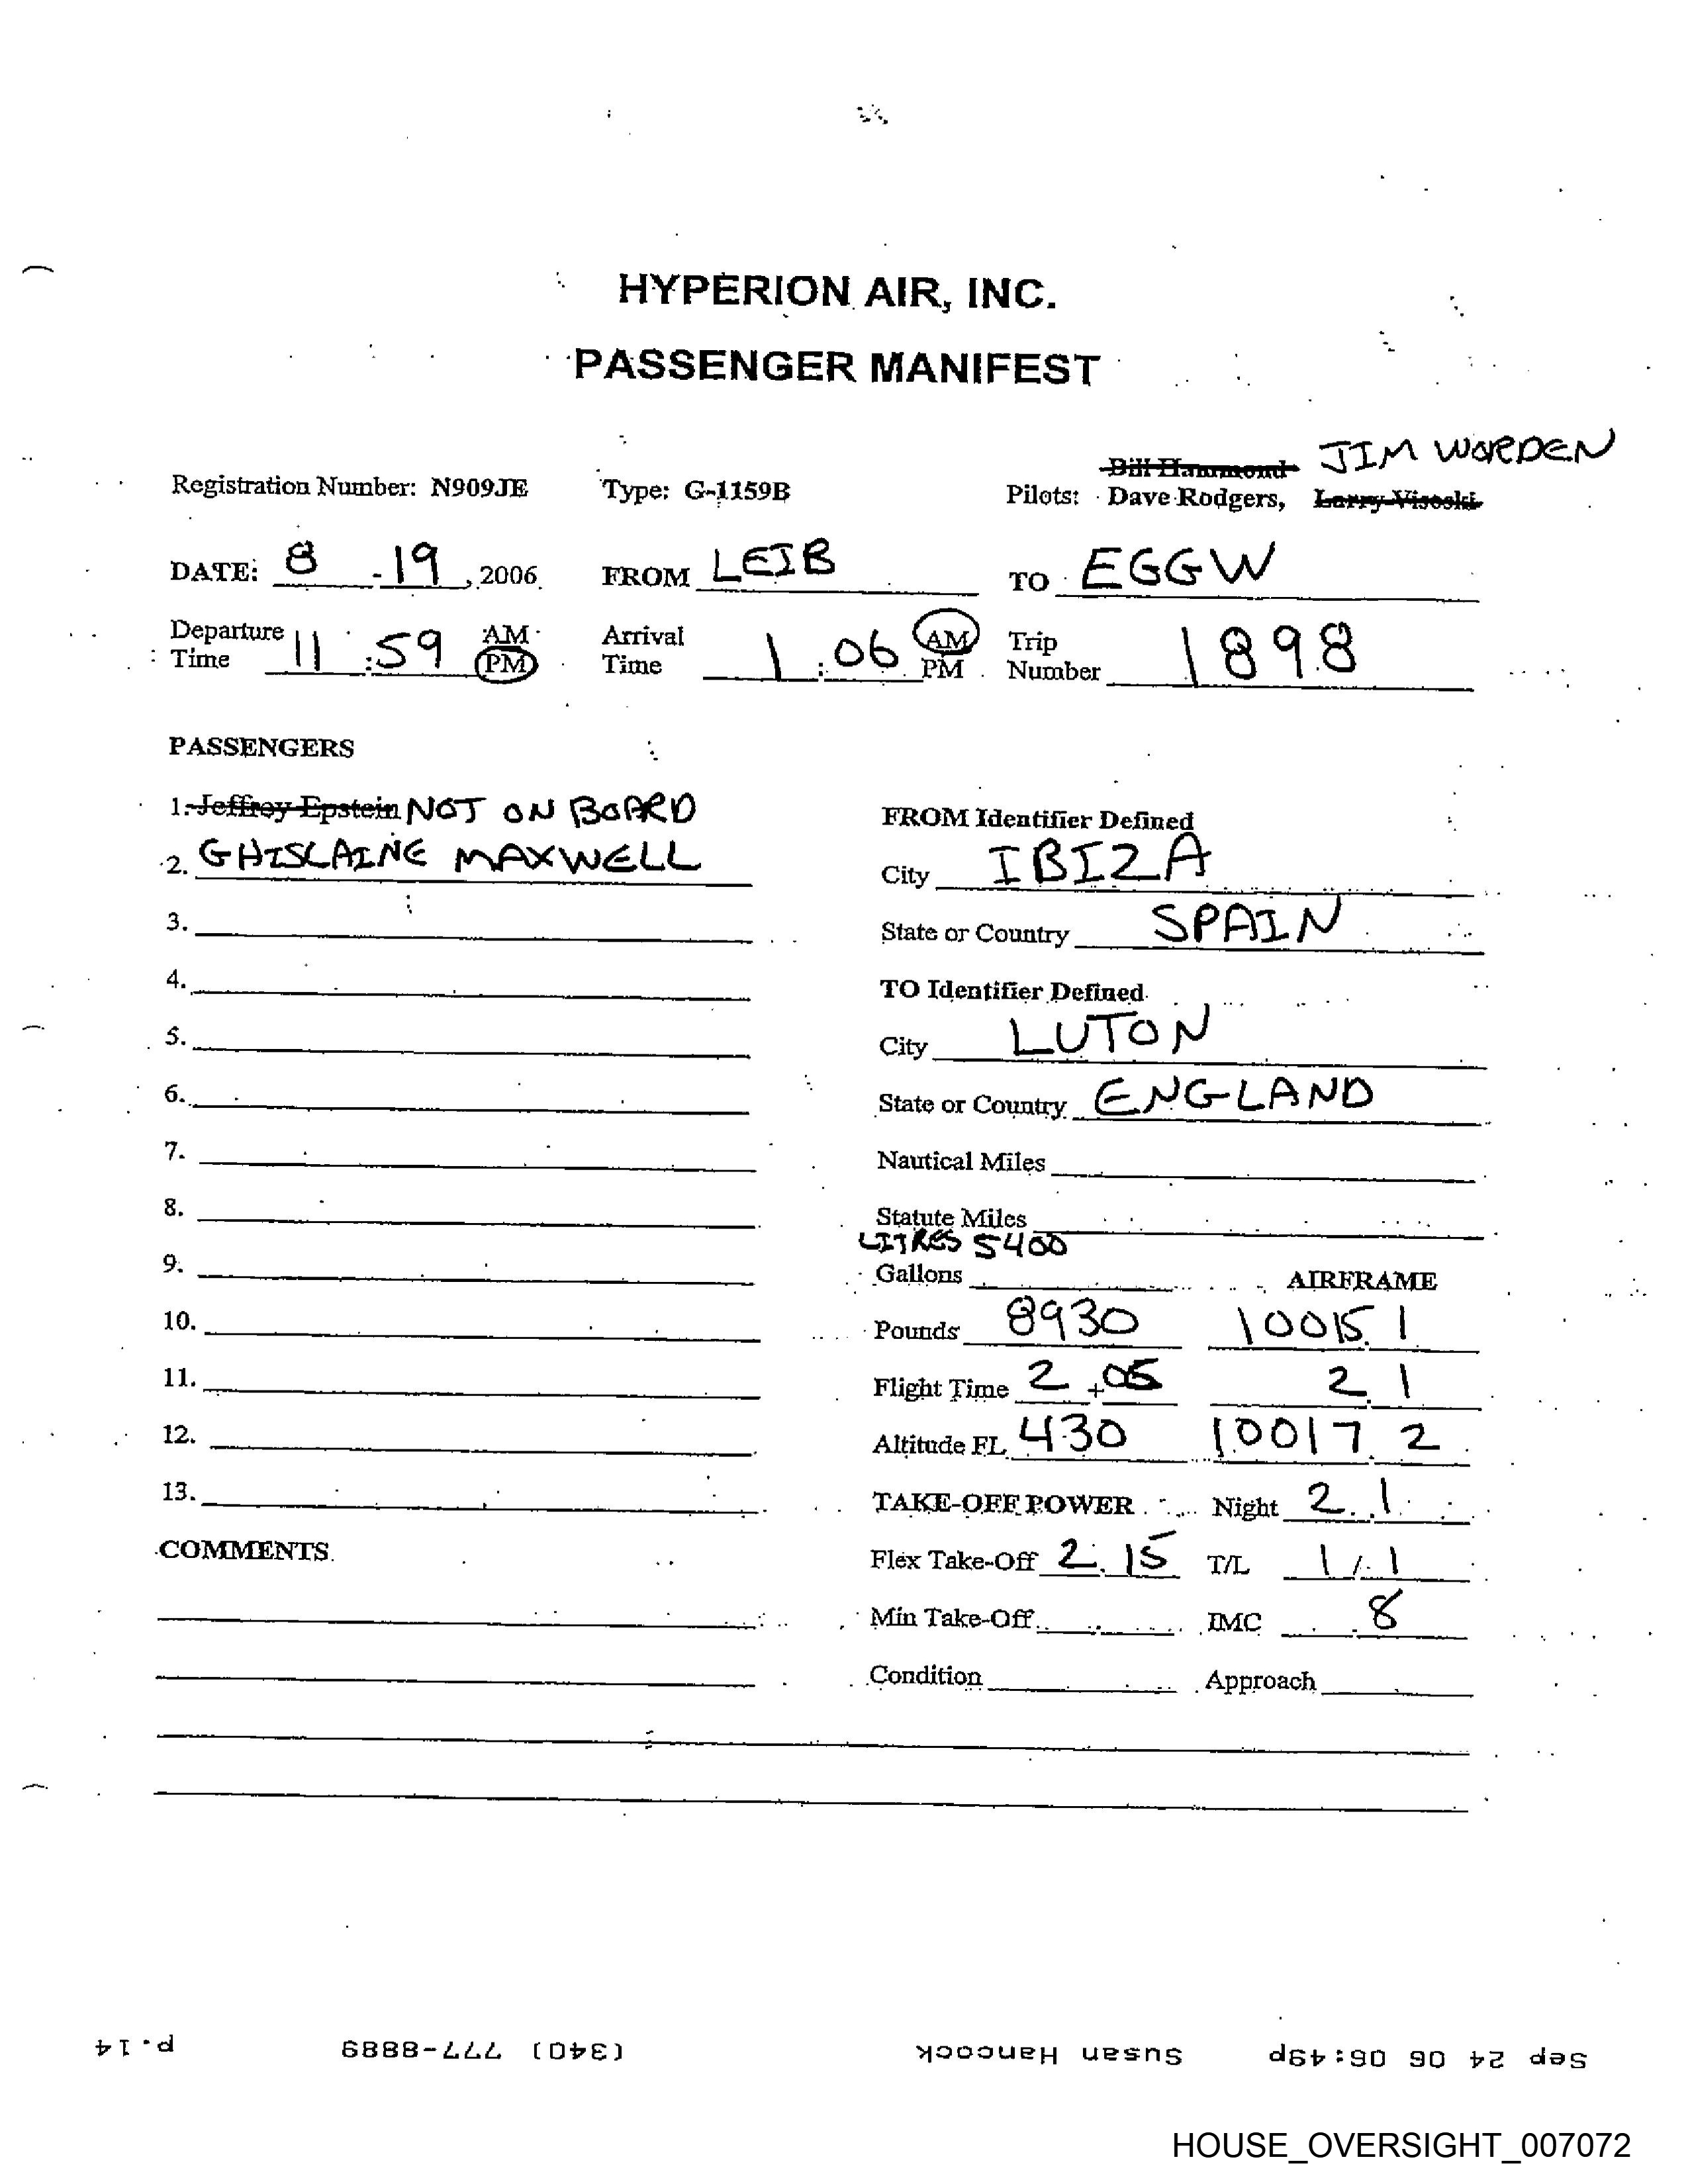 HYPERION AIR, INC.
PASSENGER MANIFEST
Bill Hammond JIM WORDEN
Registration Number: N909JE Type: G-1159B Pilots: Dave Rodgers, Larry Visoski
DATE: 8 - 19, 2006 FROM LEIB TO EGGW
Departure Time 11:59 AM PM Arrival Time 1:06 AM PM Trip Number 1898
PASSENGERS
1. Jeffrey Epstein NOT ON BOARD
2. GHISLAINE MAXWELL
3.
4.
5.
6.
7.
8.
9.
10.
11.
12.
13.
COMMENTS
FROM Identifier Defined
City IBIZA
State or Country SPAIN
TO Identifier Defined
City LUTON
State or Country ENGLAND
Nautical Miles
Statute Miles
LITRES 5400
Gallons AIRFRAME
Pounds 8930 10015.1
Flight Time 2 + 05 2.1
Altitude FL 430 10017.2
TAKE-OFF POWER Night 2.1
Flex Take-Off 2.15 T/L 1/1
Min Take-Off IMC .8
Condition Approach
Sep 24 06 06:49p Susan Hancock (340) 777-8889 p.14
HOUSE_OVERSIGHT_007072